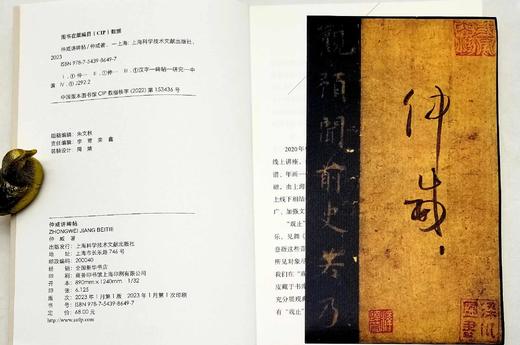 图书在版编目（CIP）数据
仲威讲碑帖 / 仲威著. —上海：上海科学技术文献出版社，
2023
ISBN 978-7-5439-8649-7
Ⅰ. ①仲… Ⅱ. ①仲… Ⅲ. ①汉字—碑帖—研究—中
国 Ⅳ. ①J292.2
中国版本图书馆 CIP 数据核字 (2022) 第 153436 号
组稿编辑：朱文秋
责任编辑：李 莺 栾 鑫
装帧设计：周 婧
仲威讲碑帖
ZHONGWEI JIANG BEITIE
仲 威 著
出版发行：上海科学技术文献出版社
地 址：上海市长乐路 746 号
邮政编码：200040
经 销：全国新华书店
印 刷：商务印书馆上海印刷有限公司
开 本：890mm×1240mm 1/32
印 张：6.125
版 次：2023 年 1 月第 1 版 2023 年 1 月第 1 次印刷
书 号：ISBN 978-7-5439-8649-7
定 价：68.00 元
http://www.sstlp.com
2020年
线上讲座，
谱、年画一
础，由上海
上线下相结
广、加强文
“观止”
乐，见舞《
意指这些音
所见对象尽
我们在“观
皮藏于书库
充分展现典
有“观止”
仲威
观预闻前史若乃